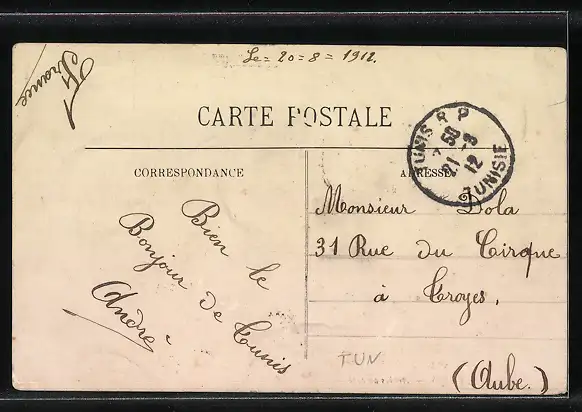 France
Le = 20 = 8 = 1912.
CARTE POSTALE
TUNIS R P
50
21 - 8
12
TUNISIE
CORRESPONDANCE
ADRESSE
Bien le
Bonjour de Tunis
André
Monsieur Dola
31 Rue du Cirque
à Troyes,
(Aube.)
TUN